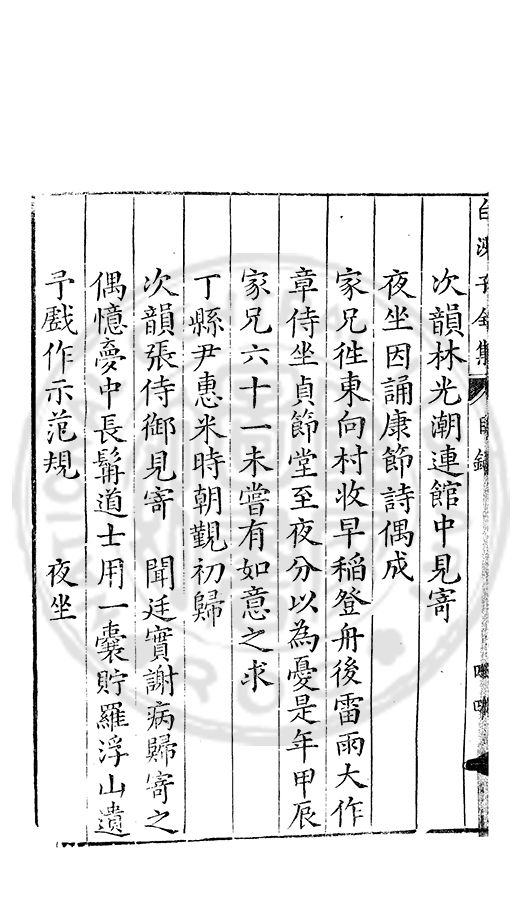 白沙子全集 目錄
次韻林光潮連館中見寄
夜坐因誦康節詩偶成
家兄徃東向村收早稻登舟後雷雨大作
章侍坐貞節堂至夜分以為憂是年甲辰
家兄六十一未嘗有如意之求
丁縣尹惠米時朝覲初歸
次韻張侍御見寄　聞廷實謝病歸寄之
偶憶夢中長髯道士用一囊貯羅浮山遺
予戲作示范規　　夜坐